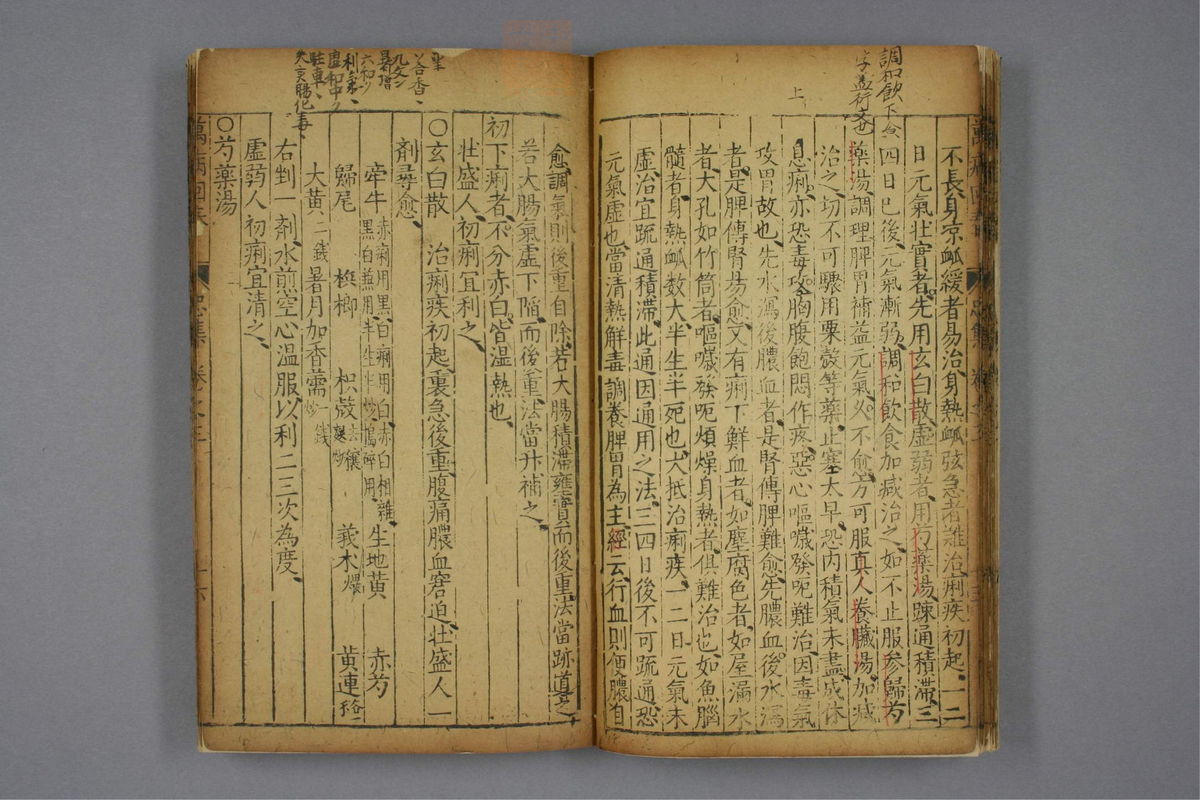 調和飲下食
字益衍文也
上
不長身凉衇緩者易治身熱衇弦急者難治痢疾初起一二
日元氣壯實者先用玄白散虛弱者用芍藥湯踈通積滯三
四日巳後元氣漸弱調和飲食加减治之如不止服參歸芍
藥湯調理脾胃補益元氣久不愈方可服真人養臟湯加减
治之切不可驟用粟殼等藥止塞太早恐内積氣未盡成休
息痢亦恐毒攻胸腹飽悶作疼惡心嘔噦發呃難治因毒氣
攻胃故也先水瀉後膿血者是腎傳脾難愈先膿血後水瀉
者是脾傳腎易愈又有痢下鮮血者如塵腐色者如屋漏水
者大孔如竹筒者嘔噦發呃煩燥身熱者俱難治也如魚腦
髓者身熱衇数大半生半死也大抵治痢疾一二日元氣未
虛治宜疏通積滯此通因通用之法三四日後不可疏通恐
元氣虛也當清熱解毒調養脾胃為主經云行血則便膿自
愈調氣則後重自除若大腸積滯壅實而後重法當跡導之
若大腸氣虛下陷而後重法當升補之
初下痢者不分赤白皆湿熱也
壯盛人初痢宜利之
〇玄白散 治痢疾初起裏急後重腹痛膿血窘迫壯盛人一
劑尋愈
牽牛 赤痢用黑白痢用白赤白相雜
黑白兼用半生半炒搗碎用 生地黃 赤芍
歸尾 梹榔 枳殼 去穰炒 莪木 煨 黃連
大黃 二錢 暑月加香薷 一錢
右剉一劑水煎空心温服以利二三次為度
虛弱人初痢宜清之
〇芍藥湯
萬病回春
忠集 卷之三